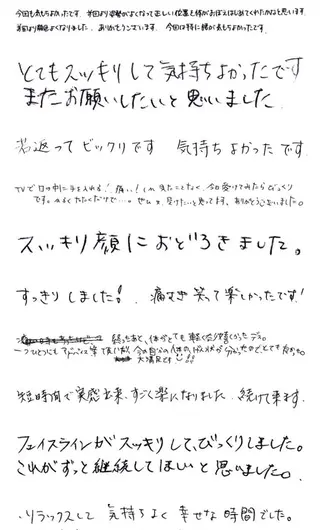 今回も気もちよかったです。前回より姿勢がよくなって正しい位置を体がおぼえはじめてくれたかなと思います。
前回より顔色よくなりました。ありがとうございます。今回は特に緒が気もちよかったです。
とてもスッキリして気持ちよかったです
またお願いしたいと思いました。
若返ってビックリです 気持ちよかったです。
TVで
痛い!
今日受けてみたらびっくり
です。
受けたいと思ってます。ありがとうございました。
スッキリ顔におどろきました。
すっきりしました! 痛すぎ笑って楽しかったです!
終ったあと、体がとても軽くなり嬉しかったデス。
一つひとつにアドバイスを頂け
今の自分の体の状況が分かったのでとても
大満足です
短時間で実感出来、すごく楽になりました。続けて来ます。
フェイスラインがスッキリして、びっくりしました。
これがずっと継続してほしいと思いました。
リラックスして 気持ちよく 幸せな時間でした。